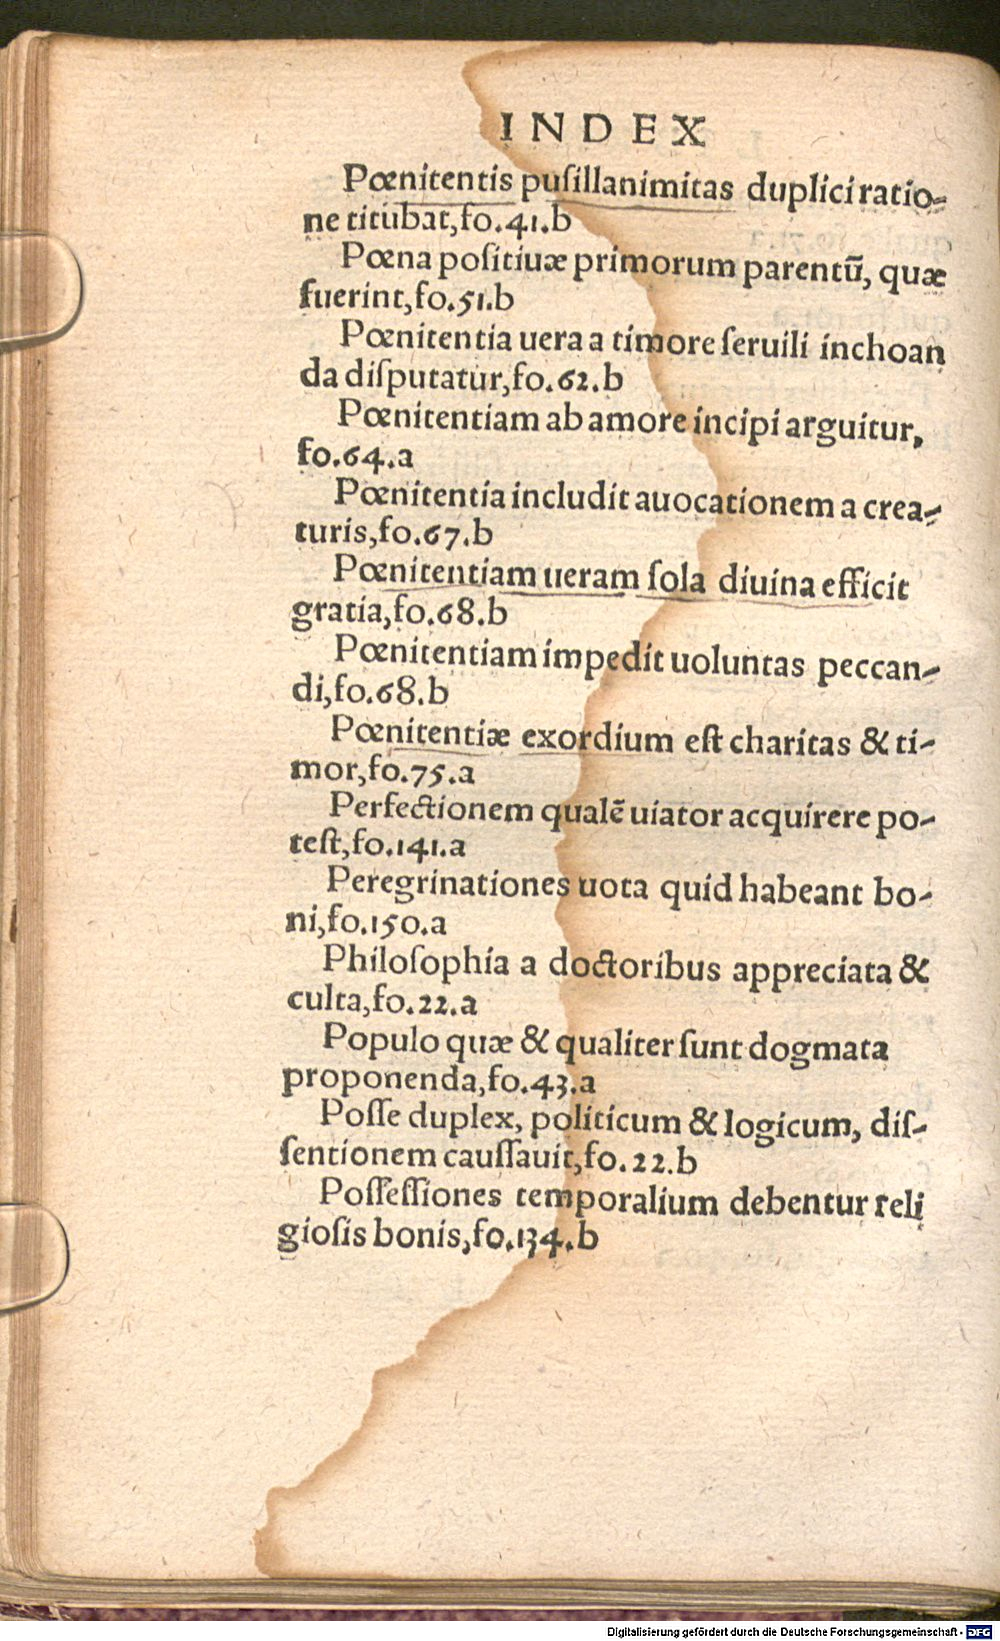 INDEX
Pœnitentis puſillanimitas duplici ratio-
ne titubat, fo.41.b
Pœna poſitiuæ primorum parentū, quæ
fuerint, fo.51.b
Pœnitentia uera a timore ſeruili inchoan
da diſputatur, fo.62.b
Pœnitentiam ab amore incipi arguitur,
fo.64.a
Pœnitentia includit auocationem a crea-
turis, fo.67.b
Pœnitentiam ueram ſola diuina efficit
gratia, fo.68.b
Pœnitentiam impedit uoluntas peccan-
di, fo.68.b
Pœnitentiæ exordium eſt charitas & ti-
mor, fo.75.a
Perfectionem qualē uiator acquirere po-
teſt, fo.141.a
Peregrinationes uota quid habeant bo-
ni, fo.150.a
Philoſophia a doctoribus appreciata &
culta, fo.22.a
Populo quæ & qualiter ſunt dogmata
proponenda, fo.43.a
Poſſe duplex, politicum & logicum, diſ-
ſentionem cauſſauit, fo.22.b
Poſſeſſiones temporalium debentur reli
gioſis bonis, fo.134.b
Digitalisierung gefördert durch die Deutsche Forschungsgemeinschaft - DFG